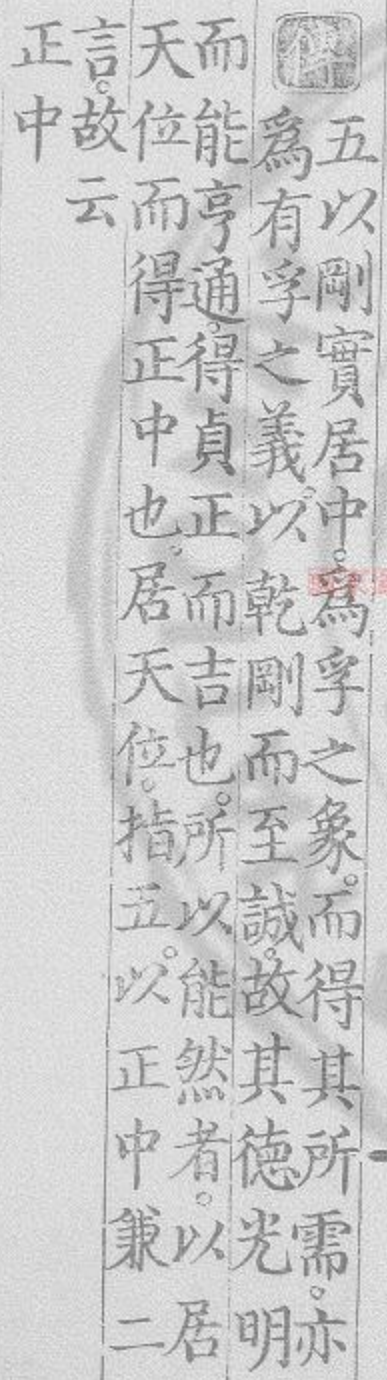 傳
五以剛實居中。為孚之象。而得其所需。亦
為有孚之義。以乾剛而至誠。故其德光明
而能亨通。得貞正而吉也。所以能然者。以居
天位而得正中也。居天位。指五。以正中兼二
言。故云
正中